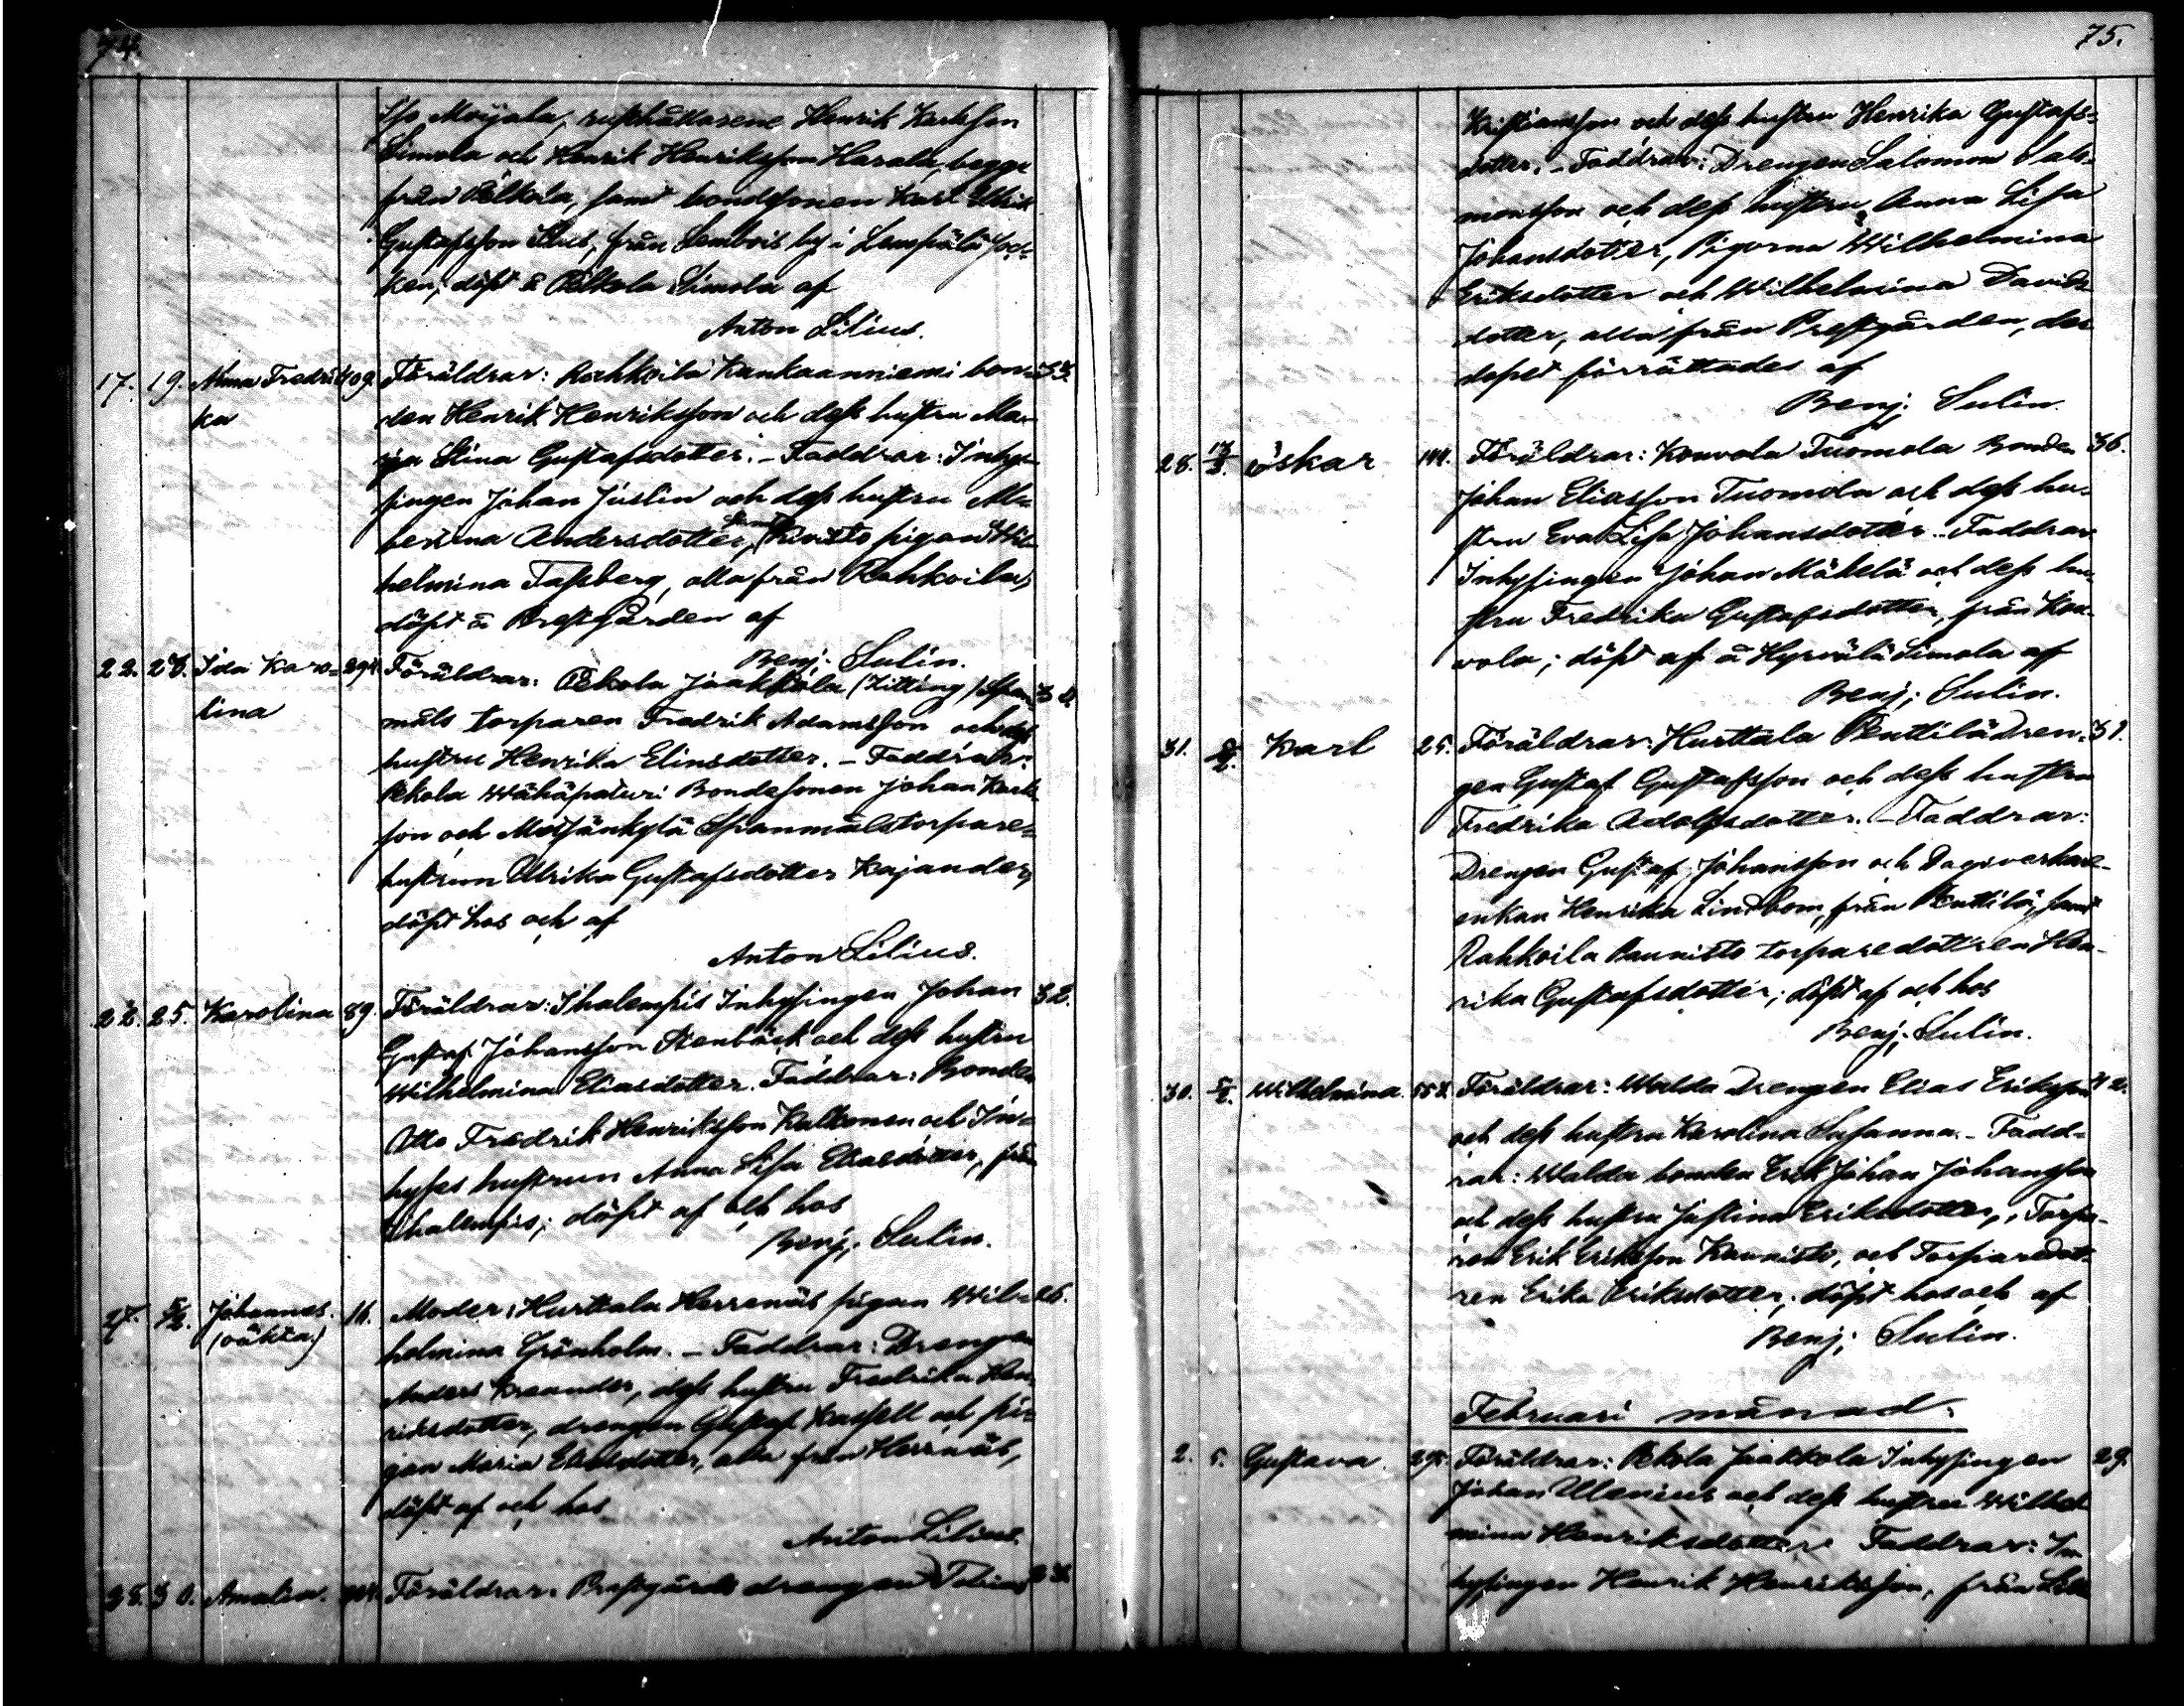 74.
Iso Moijala, rusthållarene Henrik Karlsson
Simola och Henrik Henriksson Harala, begge
från Pelkola, samt bondesonen Karl
Gustafsson från by i Lempälä Soc=
ken; döpt å Pelkola Simola af
Anton Lilius.
17. 19. Alma Fredri= 109. Föräldrar: Rahkoila Kankaanniemi bon= 33.
ka den Henrik Henriksson och dess hustru Ma=
ja Stina Gustafsdotter. – Faddrar: Inhy=
singen Johan Juslin och dess hustru Al=
bertina Andersdotter, samt pigan Wil=
helmina Tassberg, alla från Rahkoila,
döpt å Prestgården af
Benj. Sulin.
22. 26. Ida Karo= 294. Föräldrar: Pekola Jaakkola (Kitting) Span=
lina måls torparen Fredrik Adamsson och dess
hustru Henrika Elinsdotter. – Faddrar:
Pekola Wähäpaturi Bondesonen Johan Karls
son och Metsänkylä Spanmålstorpare=
hustrun Ulrika Gustafsdotter Kajander,
döpt hos och af
Anton Lilius.
22. 25. Karolina 89. Föräldrar: Ihalempis Inhysingen Johan 32.
Gustaf Johansson Stenbäck och dess hustru
Wilhelmina Eliasdotter. Faddrar: Bonden
Otto Fredrik Henriksson Kulkonen och In=
hyses hustrun Anna Lisa Eliasdotter, från
Ihalempis; döpt af och hos
Benj. Sulin.
27. 5/2. Johannes. 16. Moder: Hurttala Herrenäs pigan Wil= 26.
(oäkta) helmina Grönholm. – Faddrar: Drengen
Anders Kreander, dess hustru Fredrika Hen=
riksdotter, drengen Gustaf Kassell och pi=
gan Maria Eliasdotter, alla från Herrnäs,
döpt af och hos
Anton Lilius.
28. 30. Amalia. Föräldrar: Prestgårds drengen Tobias
75.
Kristiansson och dess hustru Henrika Gustafs=
dotter. – Faddrar: Drengen Salomon Salo=
monsson och dess hustru Anna Lisa
Johansdotter, Pigorna Wilhelmina
Eriksdotter och Wilhelmina Davids
dotter, alla från Prestgården, der
dopet förrättades af
Benj. Sulin.
28. Oskar 144. Föräldrar: Konvola Tuomola Bonden 36.
Johan Eliasson Tuomola och dess hu=
stru Eva Lisa Johansdotter. – Faddrar
Inhysingen Johan Mäkelä och dess hu=
stru Fredrika Gustafsdotter, från Kon=
vola; döpt af å Hyrvälä Simola af
Benj. Sulin.
31. Karl 25. Föräldrar: Hurttala Penttilä Dren=
gen Gustaf Gustafsson och dess hustru
Fredrika Adolfsdotter. – Faddrar:
Drengen Gustaf Johansson och Dagsverkare=
enkan Henrika Lindbom från Penttilä, samt
Rahkoila Raunisto torparedottren Hen=
rika Gustafsdotter; döpt af och hos
Benj. Sulin.
30. Wilhelmina. Föräldrar: Walda Drengen Elias Eriksson
och dess hustru Karolina Susanna. – Fadd=
rar: Walda bonden Erik Johan Johansson
och dess hustru Justina Eriksdotter, Torpa=
ren Erik Eriksson Raunisto, och Torparedott=
ren Erika Eriksdotter; döpt hos och af
Benj. Sulin.
Februari månad.
2. 5. Gustava. 295. Föräldrar: Pekola Jaakkola Inhysingen 29.
Johan Ulenius och dess hustru Wilhel
mina Henriksdotter. Faddrar: In=
hysingen Henrik Henriksson, från